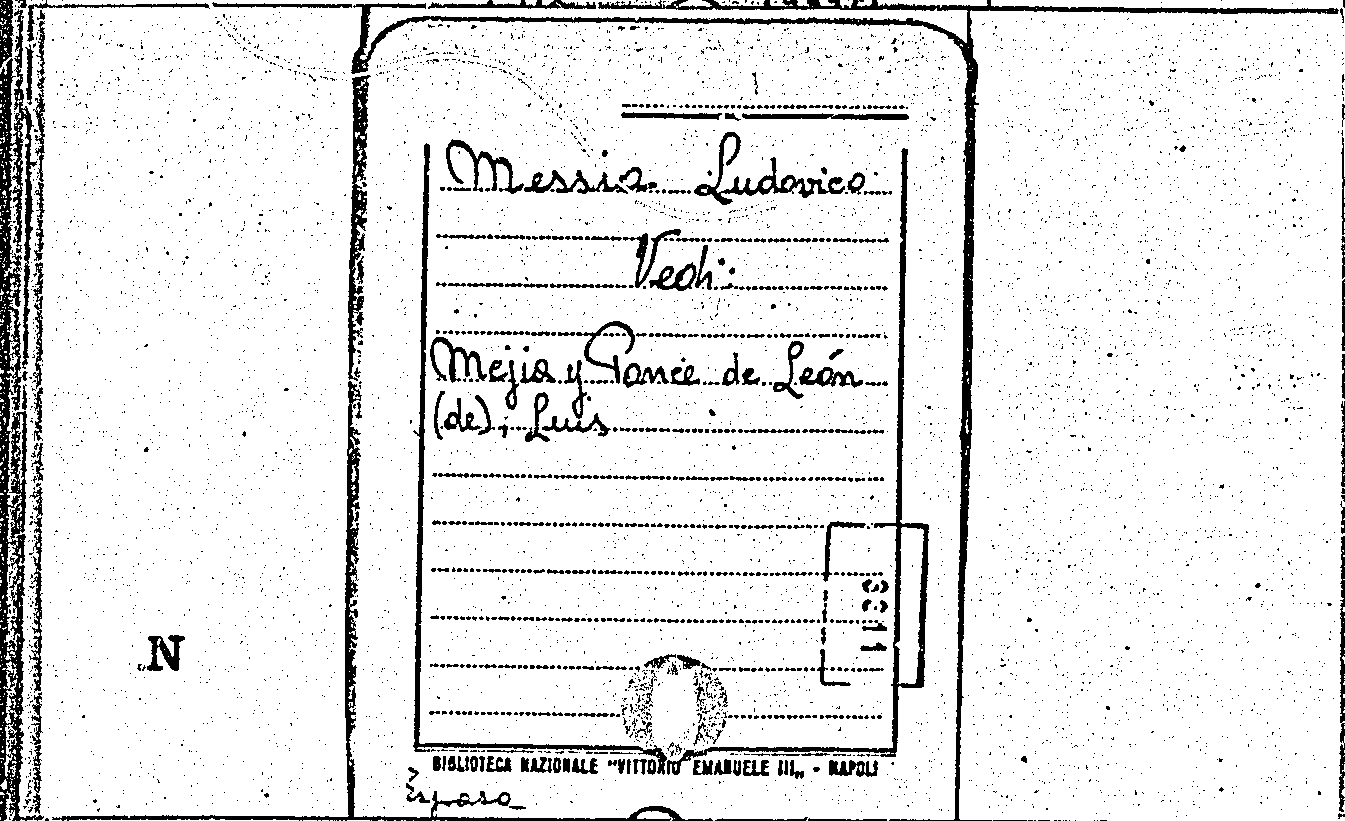 Messia Ludovico
Vedi:
Mejia y Ponce de León
(de), Luis
3311
N
BIBLIOTECA NAZIONALE "VITTORIO EMANUELE III„ - NAPOLI